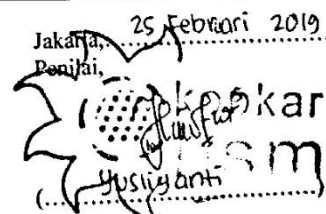 Jakarta, 25 Februari 2019
Penilai,
kokar
usm
(Yusliyanti)